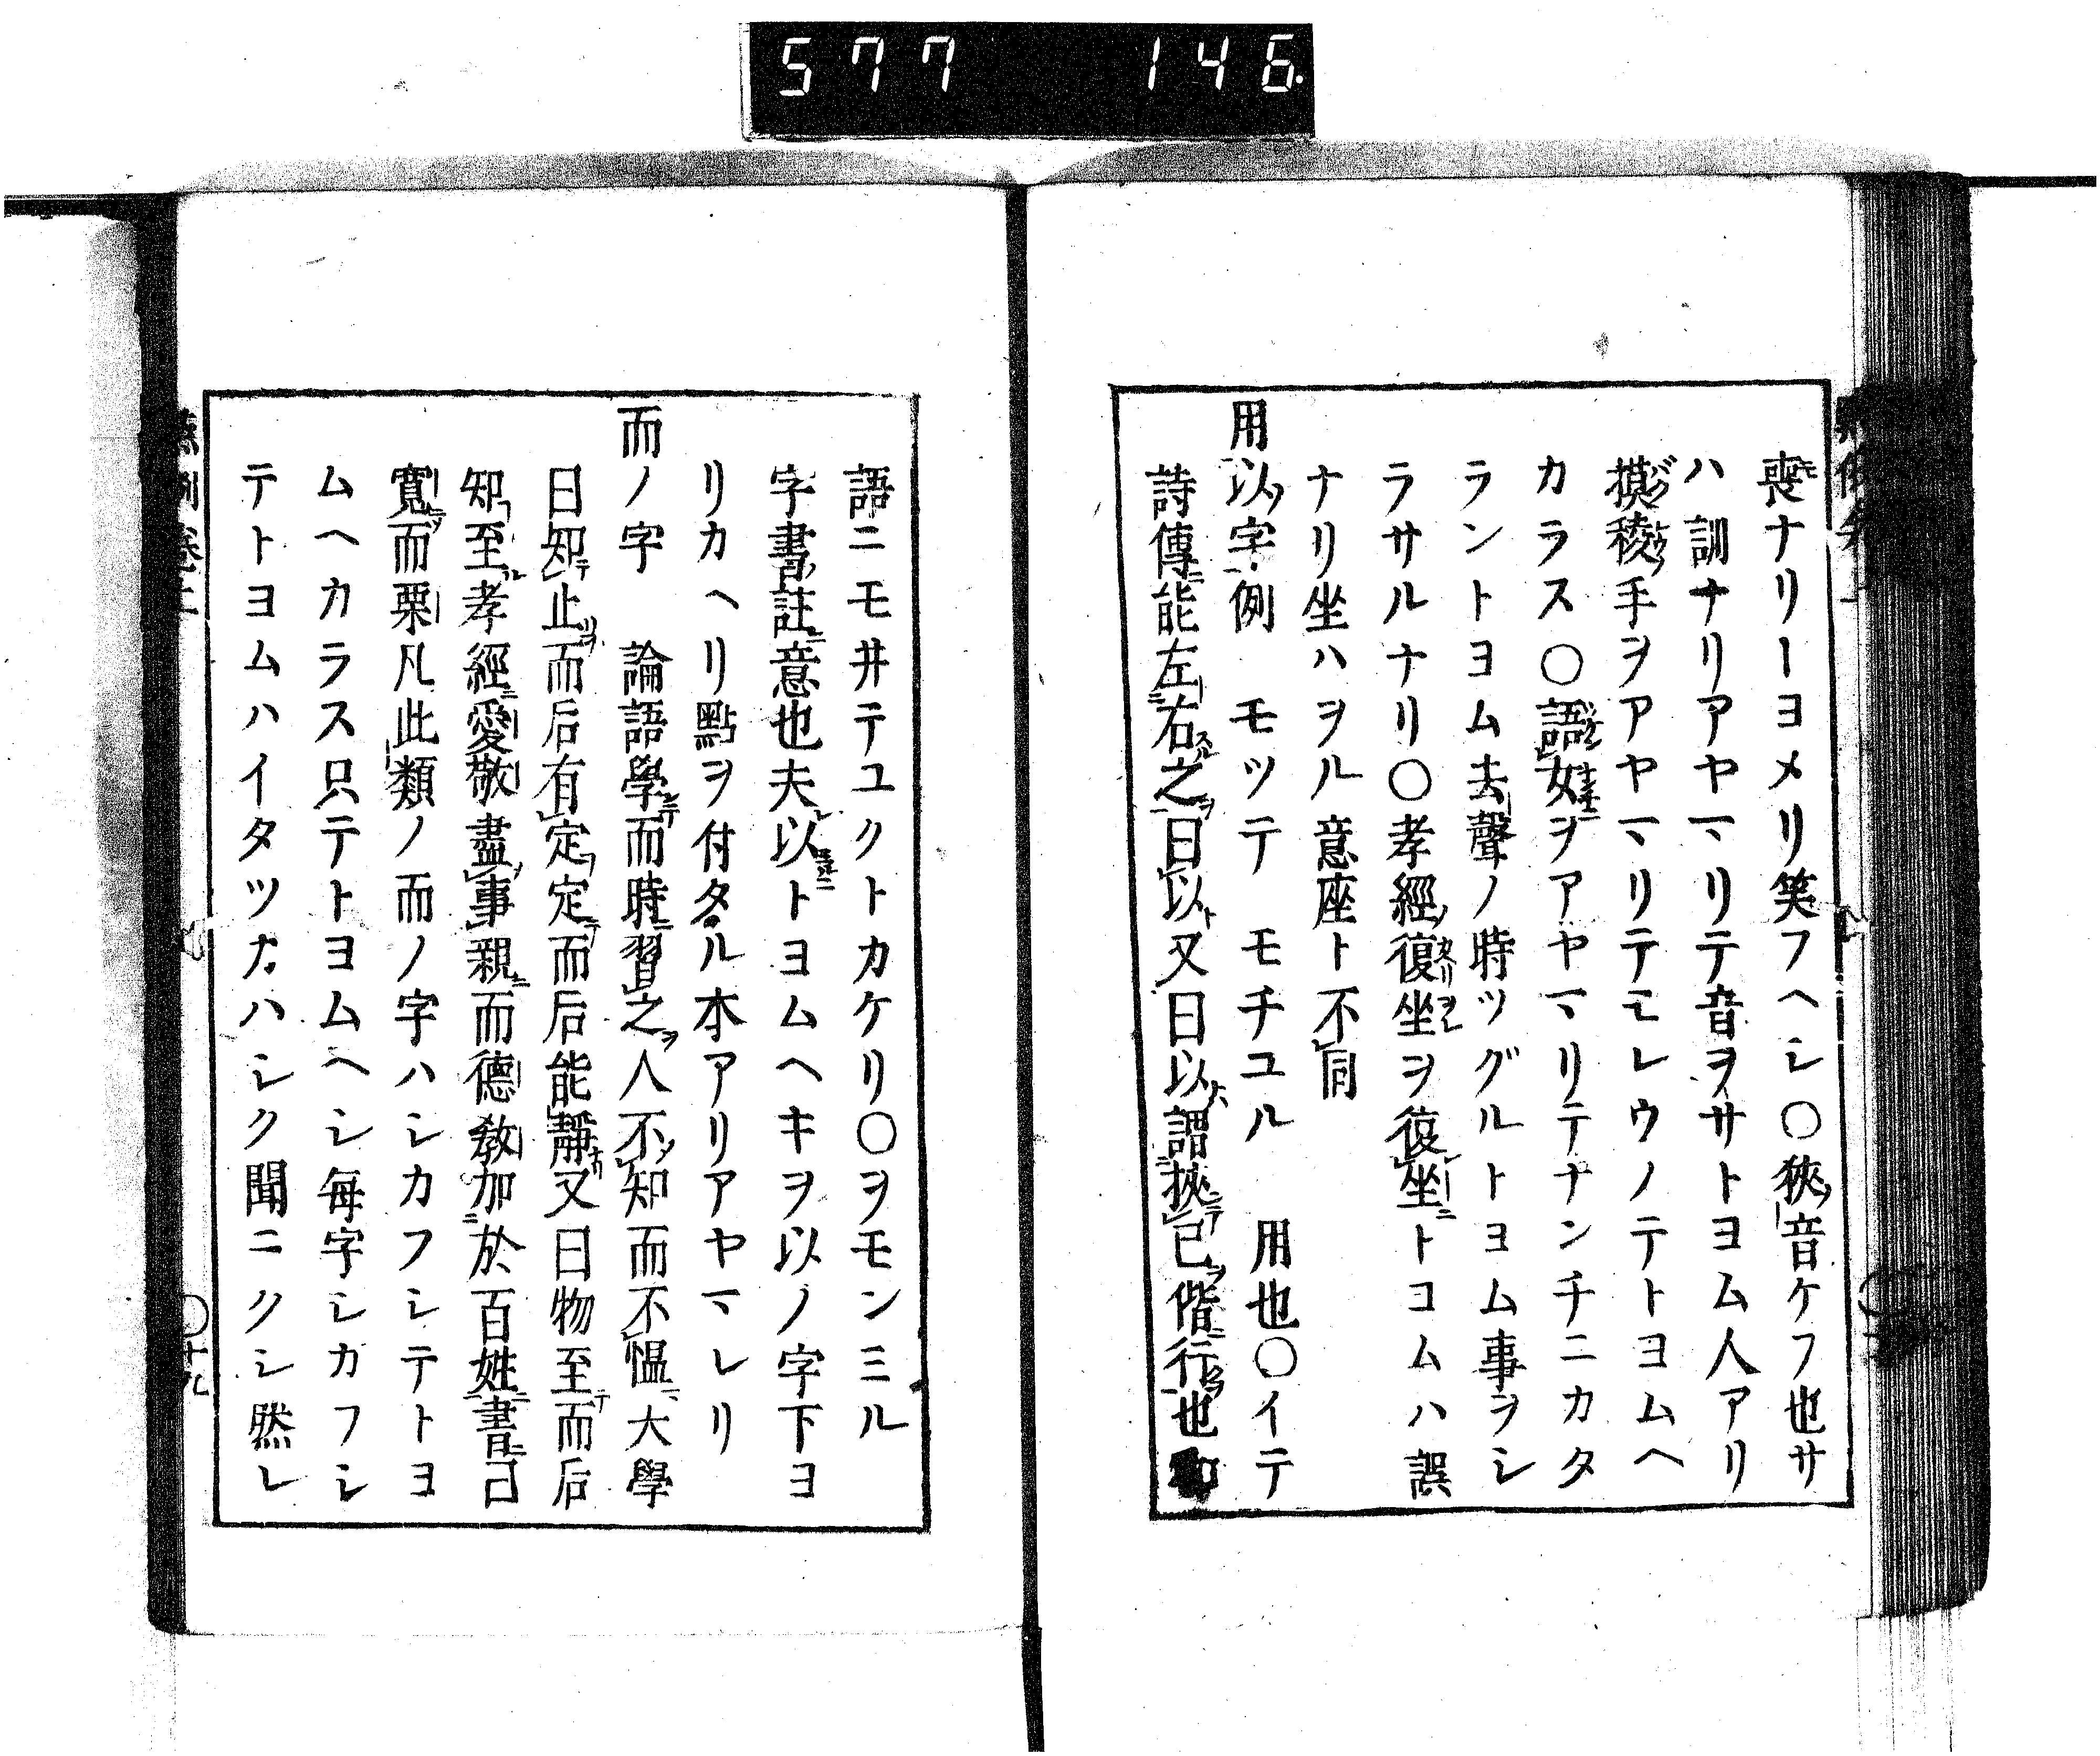 577 146
喪ナリーヨメリ笑フヘシ〇狹音ケフ也サ
ハ訓ナリアヤマリテ音ヲサトヨム人アリ
摸稜手ヲアヤマリテモレウノテトヨムヘ
カラス〇語女ヲアヤマリテナンチニカタ
ラントヨム去聲ノ時ツグルトヨム事ヲシ
ラサルナリ〇孝經復坐ヲ復坐トコムハ誤
ナリ坐ハヲル意座ト不同
用以字例 モツテ モチユル 用也〇イテ
詩傳能左右之曰以又曰以謂挾已偕行也
語ニモ井テユクトカケリ〇ヲモンミル
字書註意也夫以トヨムヘキヲ以ノ字下ヨ
リカヘリ點ヲ付タル本アリアヤマレリ
而ノ字 論語學而時習之人不知而不慍大學
曰知止而后有定定而后能靜又曰物至而后
知至孝經愛敬盡事親而德教加於百姓書曰
寛而栗凡此類ノ而ノ字ハシカフシテトヨ
ムヘカラス只テトヨムヘシ毎字シカフシ
テトヨムハイタツカハシク聞ニクシ然レ